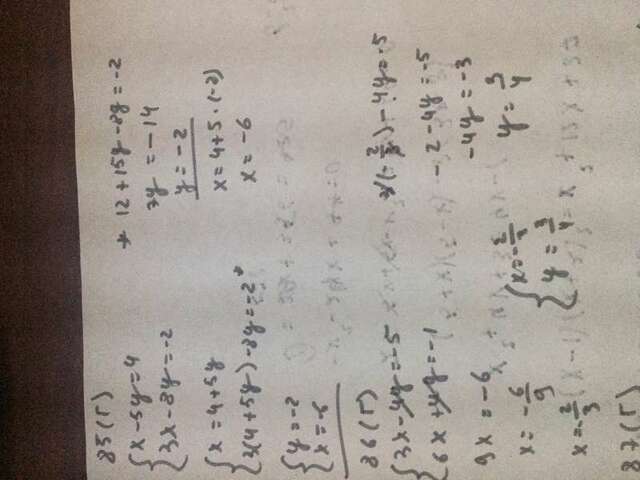 85(Г)
{x-5y=4
{3x-8y=-2
{x=4+5y
{3(4+5y)-8y=-2*
{y=-2
{x=-6
* 12+15y-8y=-2
7y=-14
y=-2
x=4+5·(-2)
x=-6
86(Г)
{3x-4y=-5
{6x+4y=-1
9x=-6
x=-6/9
x=-2/3
3(-2/3)-4y=-5
-2-4y=-5
-4y=-3
y=3/4
{x=-2/3
{y=3/4
87(Г)